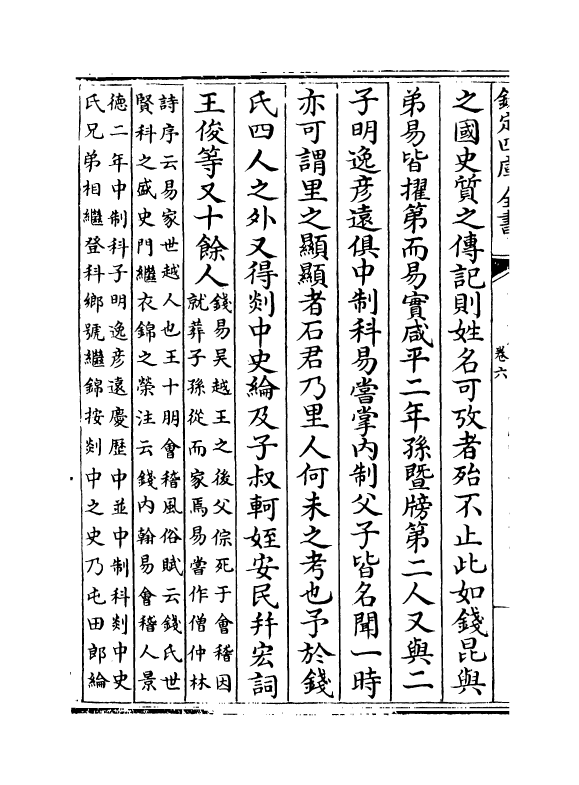 欽定四庫全書
卷六
之國史質之傳記則姓名可攷者殆不止此如錢昆與
弟易皆擢第而易實咸平二年孫暨牓第二人又與二
子明逸彦遠俱中制科易嘗掌内制父子皆名聞一時
亦可謂里之顯顯者石君乃里人何未之考也予於錢
氏四人之外又得剡中史綸及子叔軻姪安民幷宏詞
王俊等又十餘人
錢易吳越王之後父倧死于會稽因
就葬子孫從而家焉易嘗作僧仲林
詩序云易家世越人也王十朋會稽風俗賦云錢氏世
賢科之盛史門繼衣錦之榮注云錢内翰易會稽人景
德二年中制科子明逸彦遠慶歴中並中制科剡中史
氏兄弟相繼登科鄉號繼錦按剡中之史乃屯田郎綸